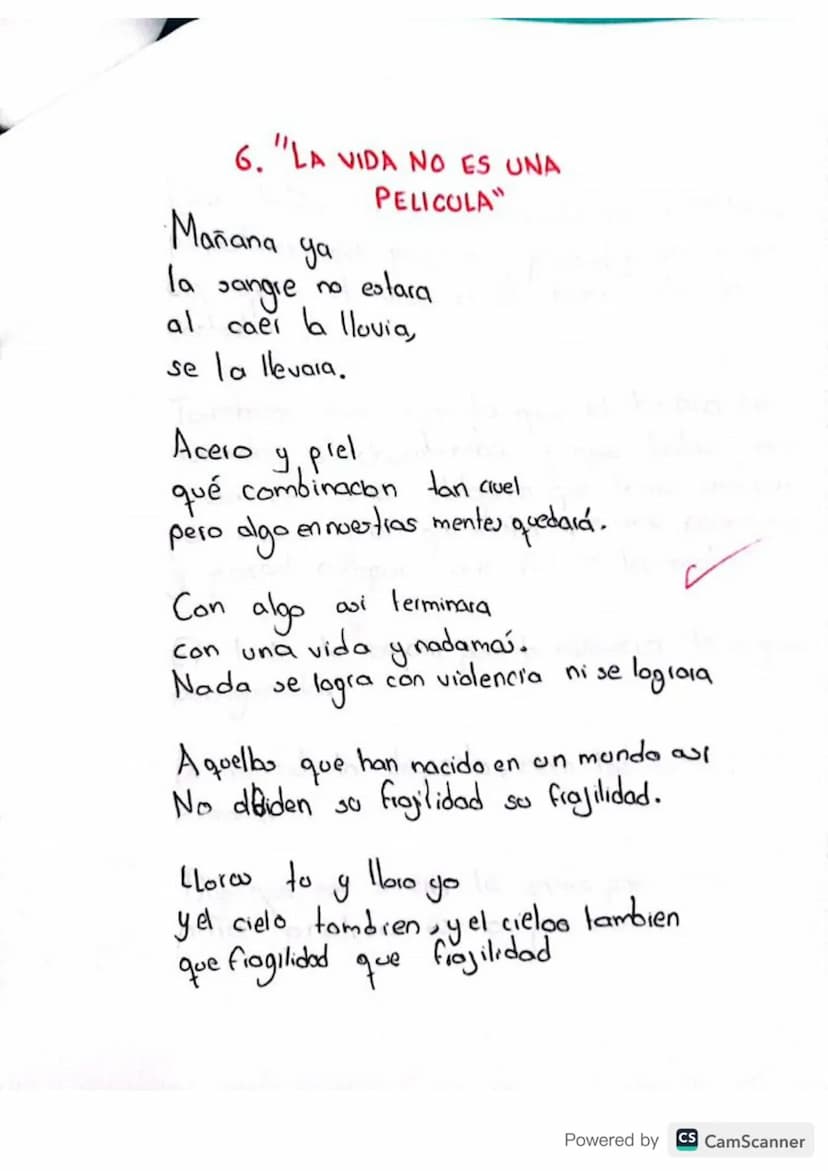 6. "LA VIDA NO ES UNA
PELICULA"
Mañana ya
la sangre no estara
al caer la lluvia,
se la llevara.
Acero y piel
qué combinacion tan cruel
pero algo en nuestras mentes quedará.
Con algo asi terminara
con una vida y nadamaś.
Nada se logra con violencia ni se lograra
Aquellos que han nacido en un mundo asi
No olviden su fragilidad su fragilidad.
Lloras tu y lloro yo
y el cielo tambien, y el cieloo tambien
que fragilidad que fragilidad
Powered by CS CamScanner